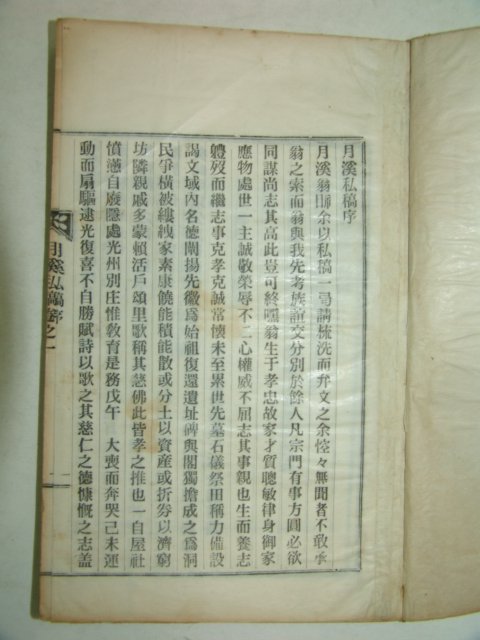 月溪私稿序
月溪翁眎余以私稿一弓請梳洗而弁文之余悾々無聞者不敢承
翁之索而翁與我先考族誼交分別於餘人凡宗門有事方圓必欲
同謀尚志其高此豈可終嘿翁生于孝忠故家才質聰敏律身御家
應物處世一主誠敬榮辱不二心權威不屈志其事親也生而養志
軆歿而繼志事克孝克誠常懷未至累世先墓石儀祭田稱力備設
謁文域內名德闡揚先徽爲始祖復還遺址碑與閣獨擔成之爲洞
民爭橫被縷絏家素康饒能積能散或分土以資産或折券以濟窮
坊隣親戚多蒙賴活戶頌里歌稱其慈佛此皆孝之推也一自屋社
憤懣自廢隱處光州別庄惟敎育是務戊午　大喪而奔哭己未運
動而扇驅逮光復喜不自勝賦詩以歌之其慈仁之德慷慨之志盖
月溪私稿序之一